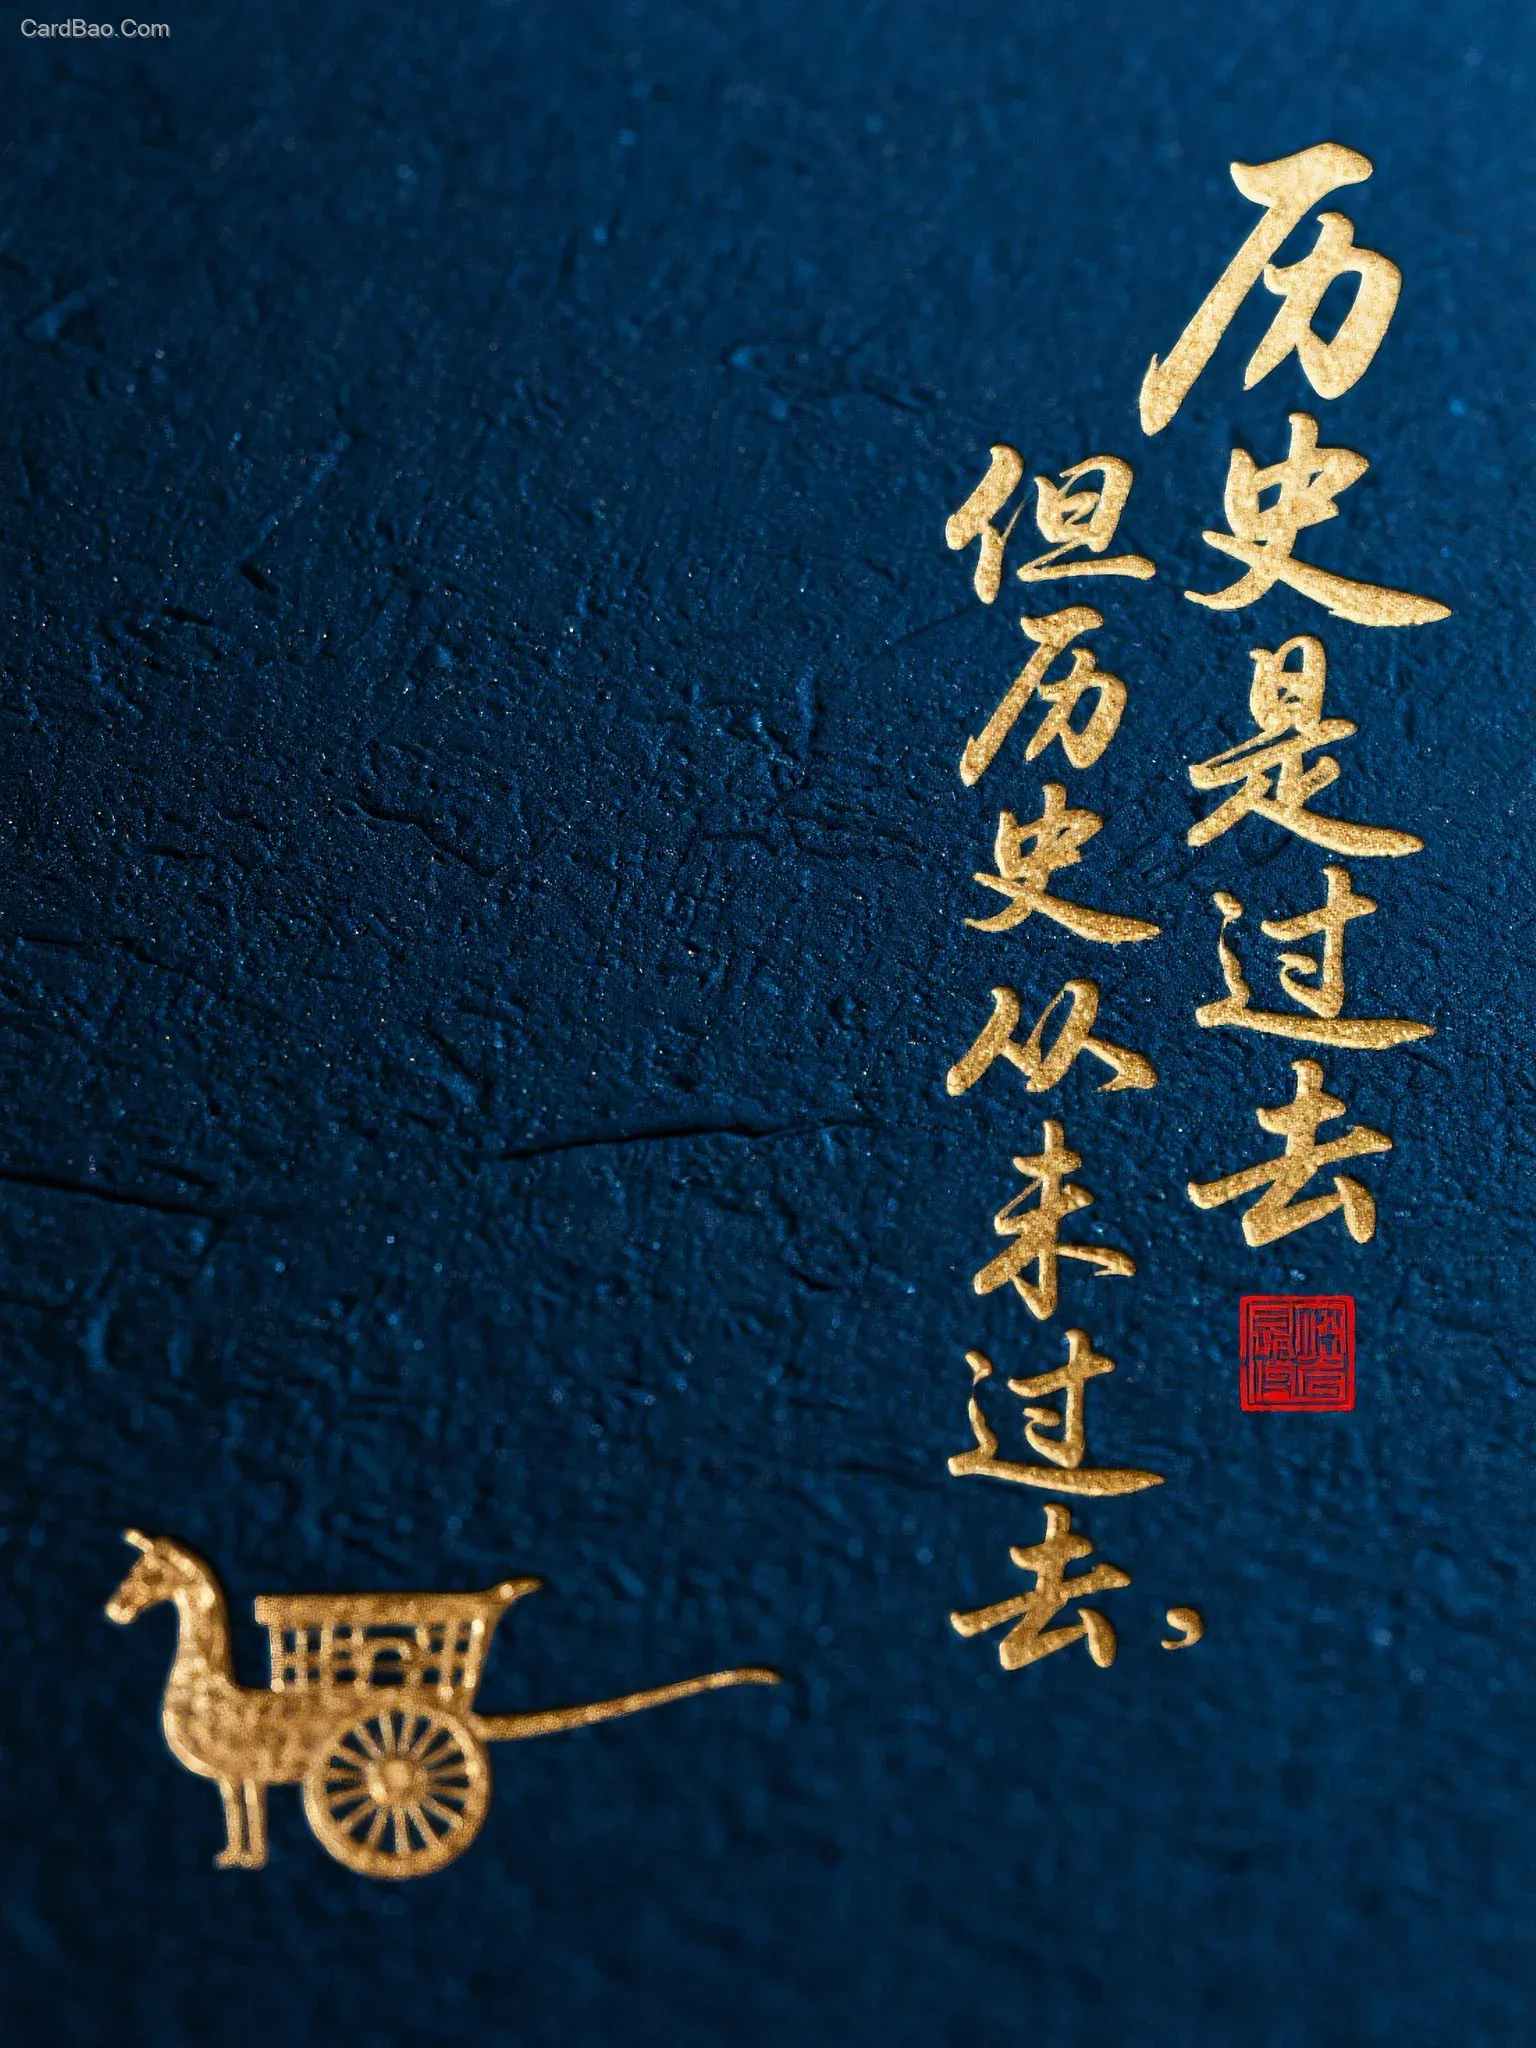 CardBao.Com
历史是过去
但历史从未过去,